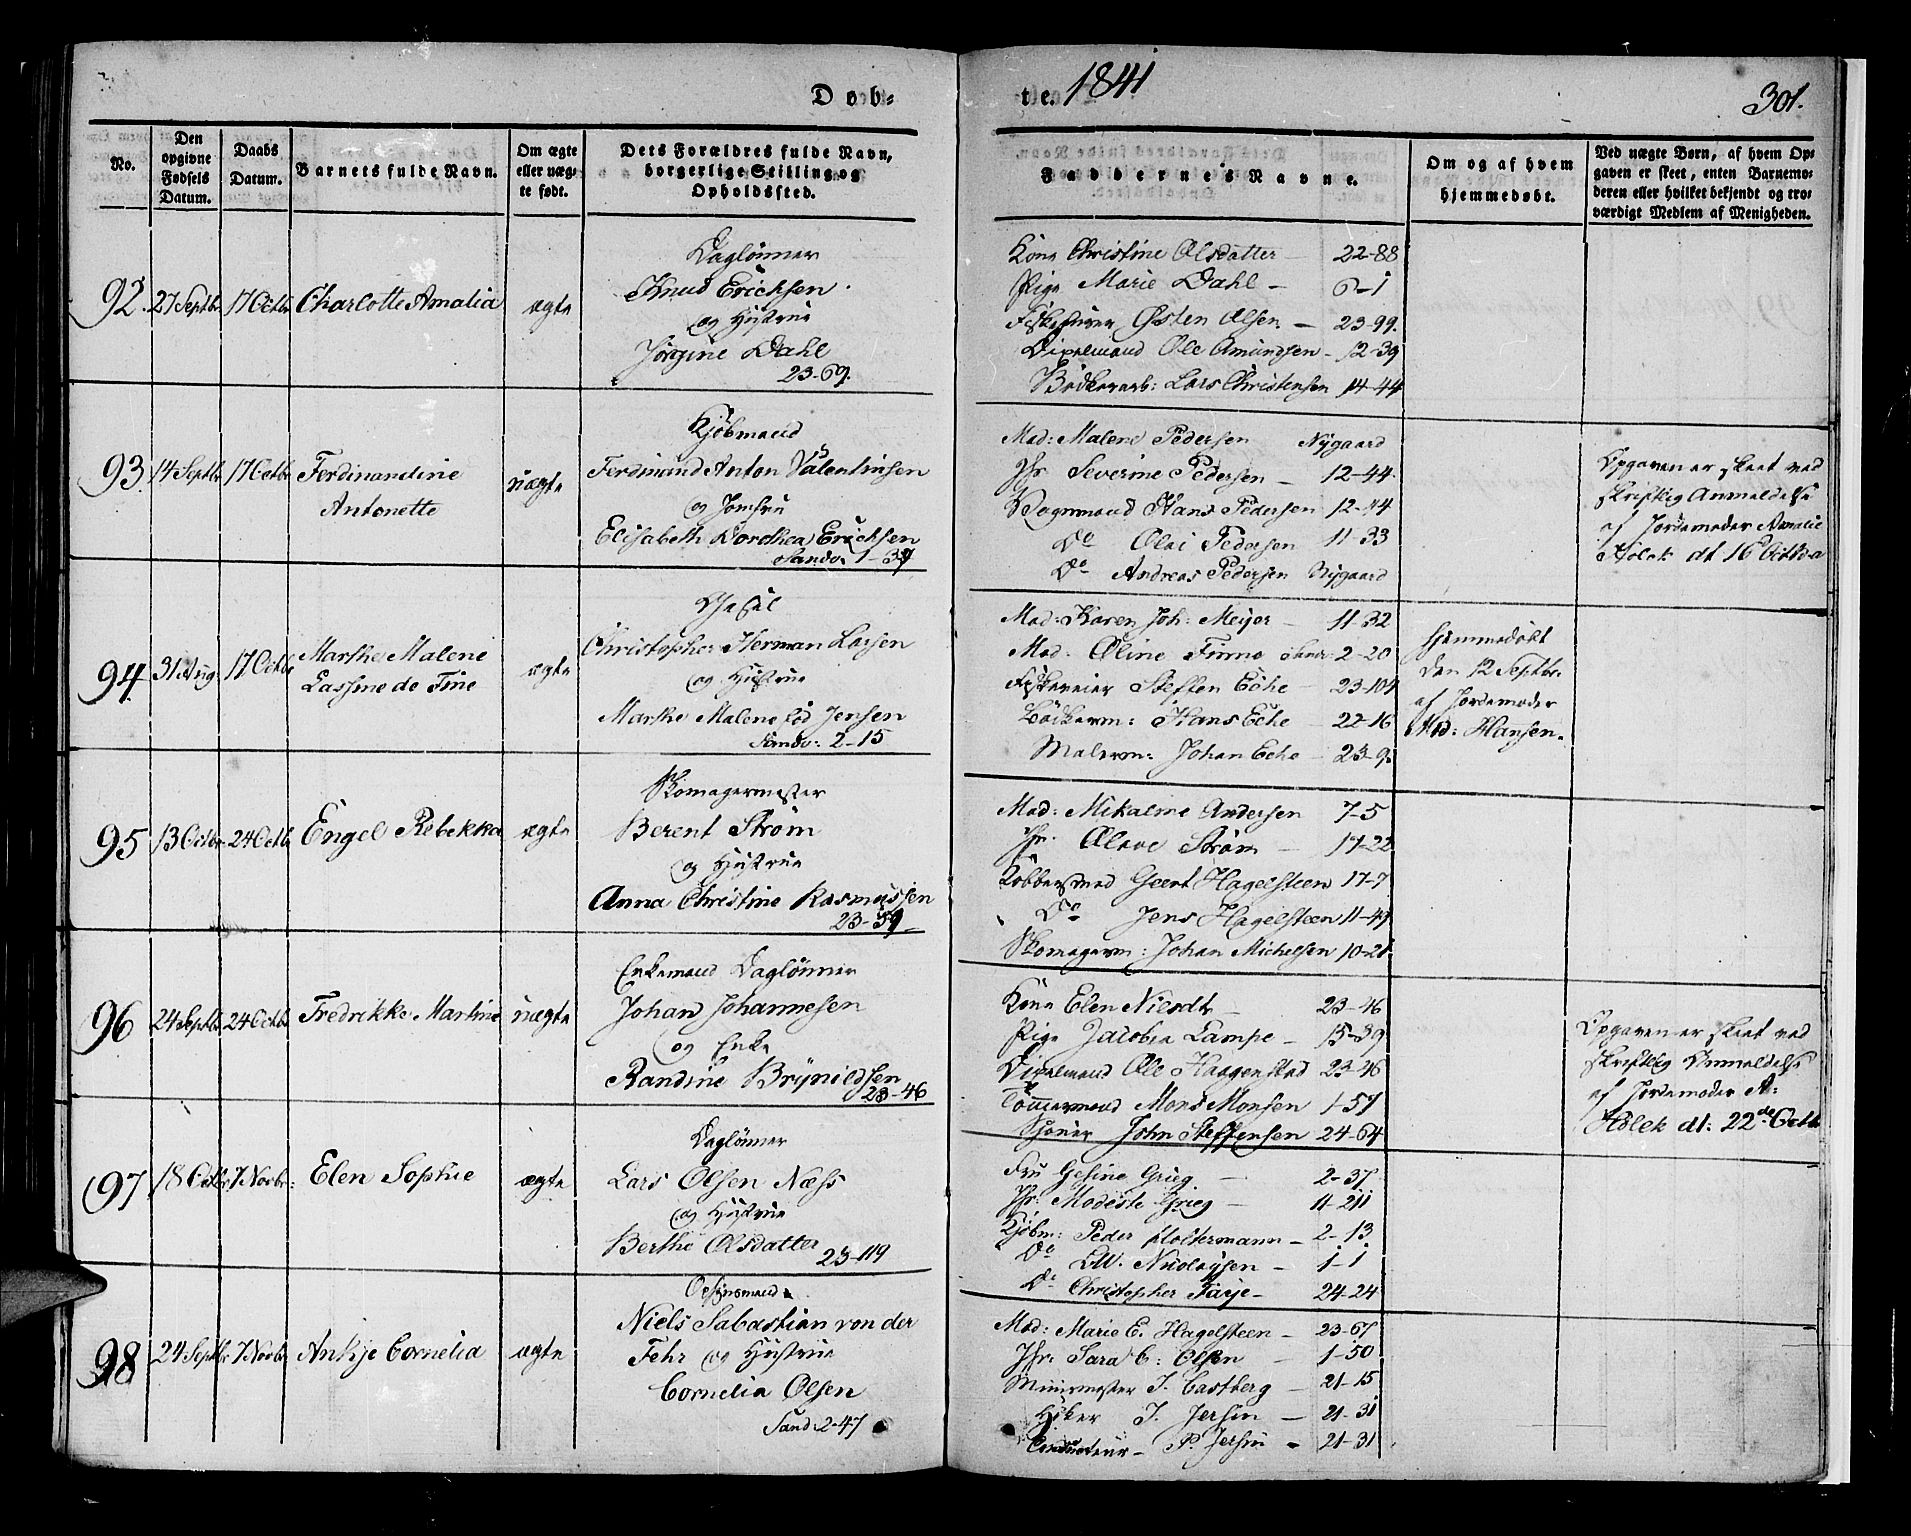 Døb-
te. 1841
301.
No.
Den opgivne Fødsels Datum.
Daabs Datum.
Barnets fulde Navn.
Om ægte eller uægte født.
Dets Forældres fulde Navn, borgerlige Stilling og Opholdssted.
Faddernes Navne.
Om og af hvem hjemmedøbt.
Ved uægte Børn, af hvem Opgaven er skeet, enten Barnemoderen eller hvilket bekjendt og troværdigt Medlem af Menigheden.
92. 27 Septbr 17 Octbr Charlotte Amalia ægte
Daglönner
Knud Ericksen
og Hustrue
Jörgine Dahl
23-69.
Kone Christine Olsdatter - 22-88
Pige Marie Dahl - 6-1
Østen Olsen - 23-99.
Ole Amundsen - 12-39
Bödkersv: Lars Christensen 14-44
93 14 Septbr 17 Octbr Ferdinandine
Antonette
uægte
Kjöbmand
Ferdinand Anton Valentinsen
og Jomfru
Elisabeth Dorthea Ericksen
Sandv. 1-37
Mad: Malene Pedersen Nygaard
Jfr. Severine Pedersen - 12-44.
Vognmand Hans Pedersen 12-44
Do Olai Pedersen 11-33
Do Andreas Pedersen Nygaard
Opgaven er skeet ved
skriftlig Anmeldelse
af Jordemoder Amalie
Holck dt 16 Octbr
94 31 Aug 17 Octbr Marthe Malene
Lassine de Fine
ægte
Christopher Herman Larsen
og Hustrue
Marthe Malene föd Jensen
Sandv: 2-15
Mad: Karen Joh: Meyer - 11-32
Mad. Oline Finne Sandv: 2-20
Steffen Eche - 23-104
Bödkerm: Hans Eche - 22-16
Malerm: Johan Eche - 23-9
hjemmedöbt
den 12 Septbr.
af Jordemoder
Mad: Hansen.
95 13 Octbr. 24 Octb. Engel Rebekka ægte
Skomagermester
Berent Ström
og Hustrue
Anna Christine Rasmussen
23-59
Mad: Mikaline Andersen 7-5
Jfr. Olave Ström - 17-22
Kobbersmed Geert Hagelsteen 17-7
Do Jens Hagelsteen 11-49
Skomagerm: Johan Michelsen 10-21
96 24 Septbr 24 Octbr Fredrikke Martine uægte
Enkemand Daglönner
Johan Johannesen
og Enke
Randine Brynildsen
23-46
Kone Elen Nielsdtr - 23-46
Pige Jacobia Lampe - 15-39
Ole Haagenstad 23-46
Tömmermand Mons Monsen 1-57
John Steffensen 24-64
Opgaven er skeet ved
skriftlig Anmeldelse
af Jordemoder A:
Holck dt: 22de Octb
97 18 Octbr 7 Novbr: Elen Sophie ægte
Daglönner
Lars Olsen Næss
og Hustrue
Berthe Olsdatter
23-119
Fru Gesine Grieg - 2-37
Jfr: Modeste Grieg - 11-211
Kjöbm: Peder Holtermann - 2-13
Do Nicolaysen - 1-1
Do Christopher Farje - 24-24
98 24 Septbr 7 Novbr Ankje Cornelia ægte
Opsynsmand
Niels Sabastian von der
Fehr og Hustrue
Cornelia Olsen
Sand: 2-47
Mad: Marie E. Hagelsteen - 23-67
Jfr: Sara C: Olsen - 1-50
Muurmester J. Castberg - 21-15
Höker J. Jersin - 21-31
Conducteur - P. Jersin - 21-31